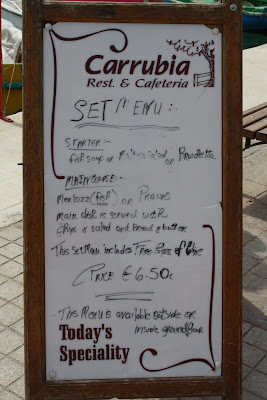 Carrubia
Rest. & Cafeteria
SET MENU:-
STARTER:-
fish soup or salad or Bruschetta
MAINCOURSE:-
Merluzz (fish) or Prawns
main dish is served with
chips & salad and Bread & butter
This Set Menu includes Free Glass of Wine
PRICE € 6.50c
This Menu is available outside or
inside ground floor
Today's
Speciality